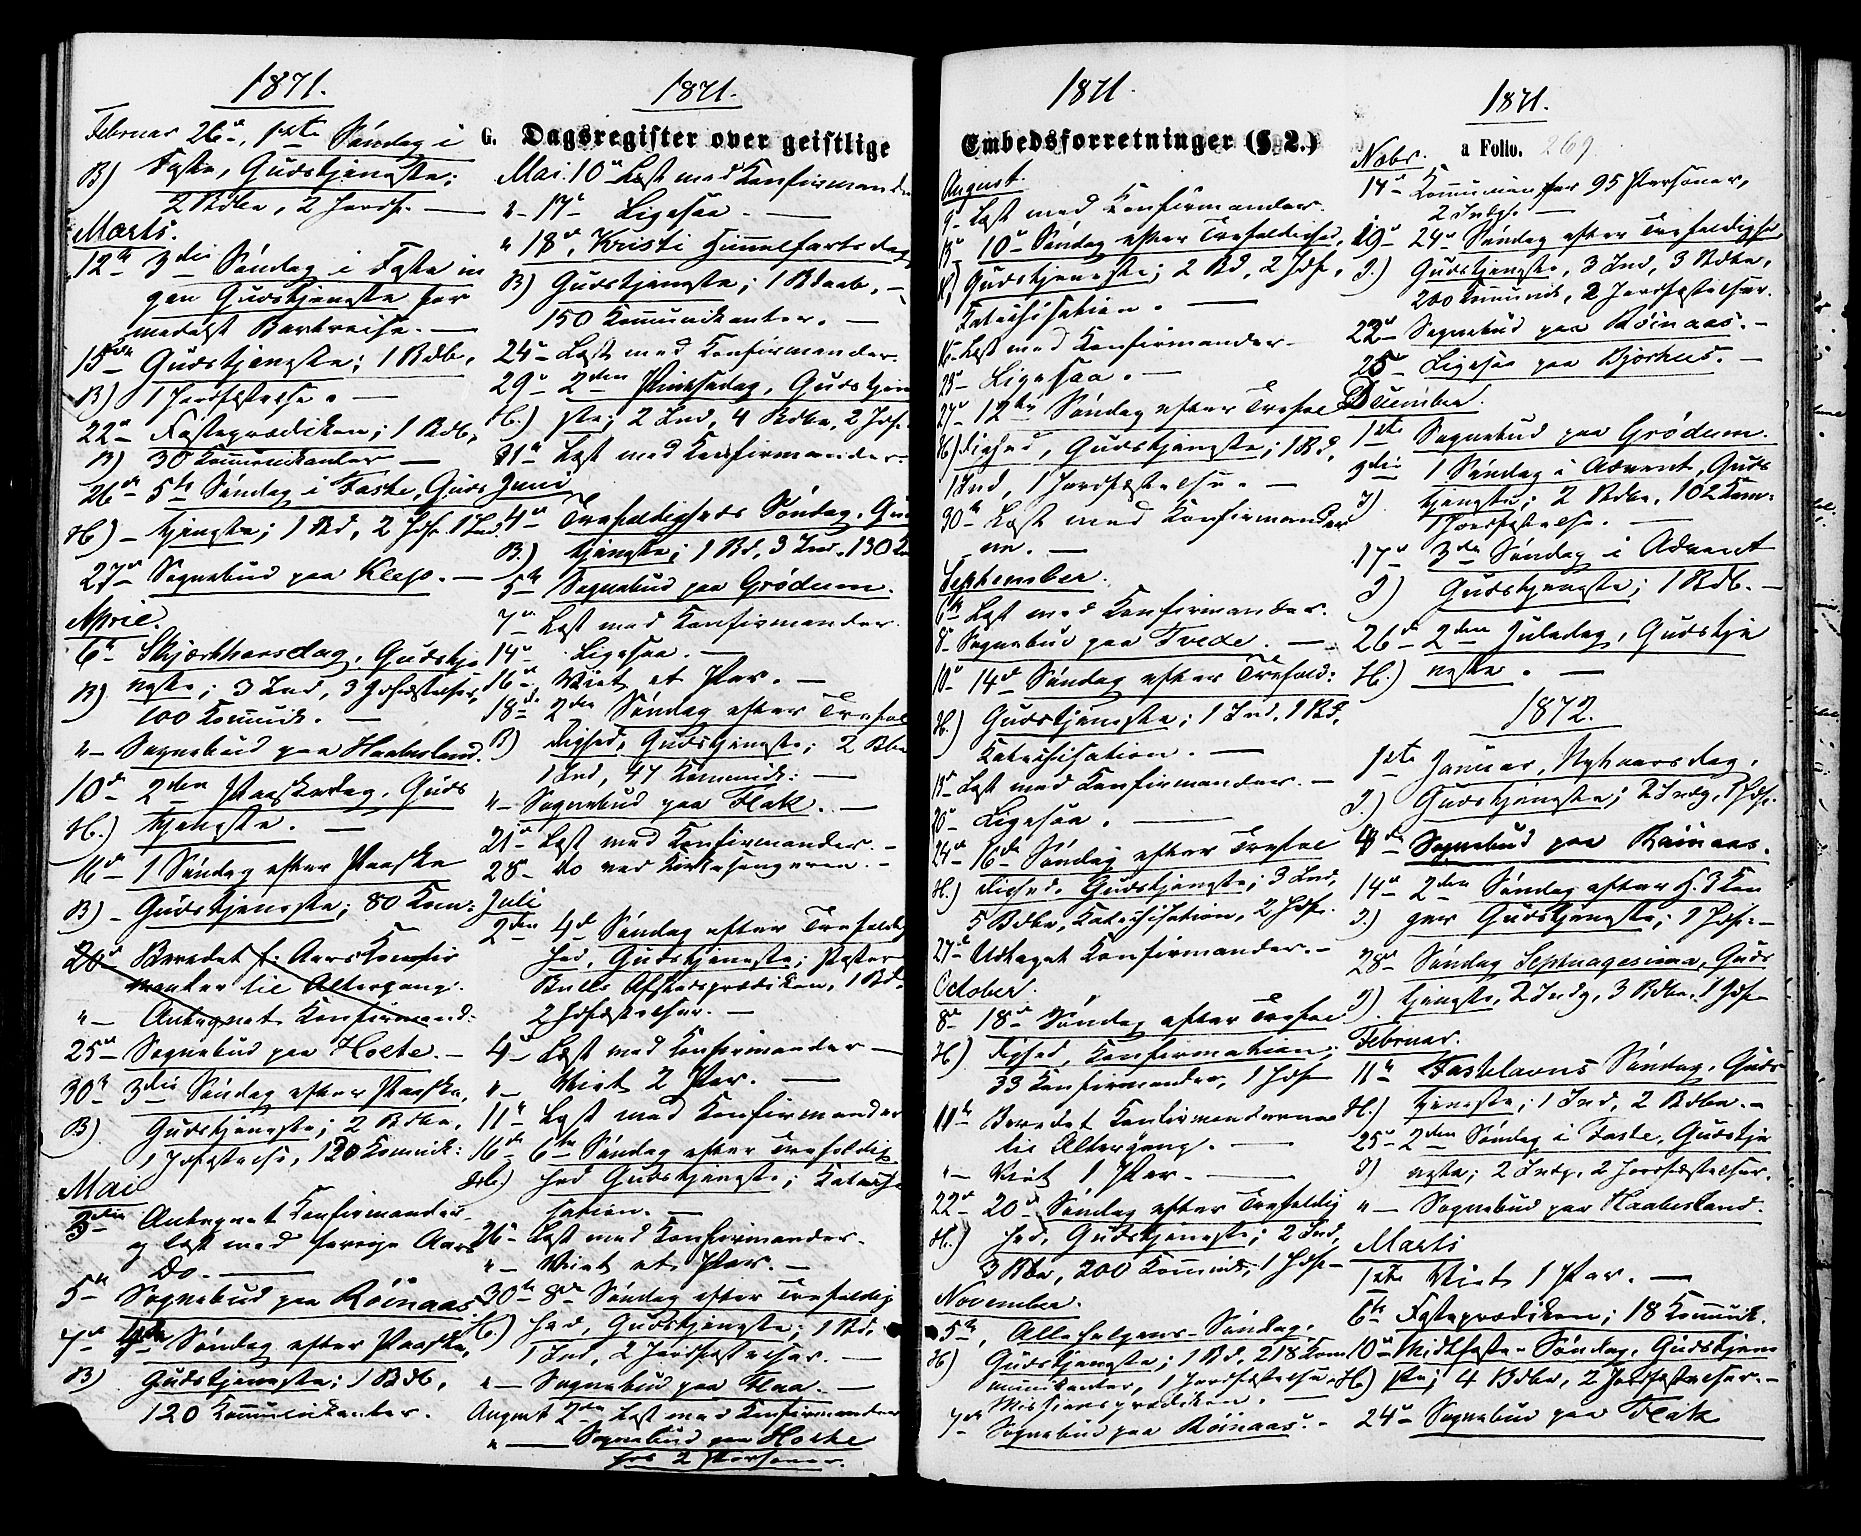 1871.
Februar 26de, 1ste Søndag i
B) Faste, Gudstjeneste;
2 Bdbe, 2 Jordf. —
Marts.
12te 3die Søndag i Faste in
gen Gudstjeneste for
medelst Bortreise. —
15de Gudstjeneste; 1 Bdb,
B) 1 Jordfæstelse. —
22de Fasteprædiken; 1 Bdb,
B) 30 Kommunikanter —
26de 5te Søndag i Faste, Guds
H) — tjeneste; 1 Bd, 2 Jdf. 1 Ind.
27de Sognebud paa Klep. —
April.
6te Skjærthorsdag, Gudstje
B) neste; 3 Ind, 3 Jdfæstelser,
100 Kommunik. —
"— Sognebud paa Haabesland.
10de 2den Paaskedag, Guds
H.) tjeneste. —
16de 1 Søndag efter Paaske
B) — Gudstjeneste; 80 Kom:
20de Beredet f: Aars Konfir
manter til Altergang.
"— Antegnet Konfirmand.
25de Sognebud paa Holte. —
30te 3die Søndag efter Paaske,
B) Gudstjeneste; 2 Bdbe,
1 Jdfæstelse, 120 Kommunik:
Mai
3die Antegnet Konfirmander
og læst med forrige Aars
Do. —
5te Sognebud paa Røinaas
7de 4de Søndag efter Paaske,
B) Gudstjeneste; 1 Bdb,
120 Kommunikanter.
1871.
G. Dagsregister over geistlige
Mai. 10de Læst med Konfirmander
"— 17de Ligesaa. —
" 18de, Kristi Himmelfartsdag
B) Gudstjeneste; 1 Bdaab, —
150 Kommunikanter. —
24de Læst med Konfirmander.
29de 2den Pinksedag, Gudstjene
H.) ste; 2 Ind, 4 Bdbe, 2 Jdf.
31te Læst med Konfirmander.
Juni
4de Trefoldigheds Søndag, Guds
B.) tjeneste; 1 Bd, 3 Ind. 130 K
5te Sognebud paa Grødum.
7de Læst med Konfirmander.
14de Ligesaa. —
16de Viet et Par. —
18de 2den Søndag efter Trefol
B) dighed, Gudstjeneste; 2 Bbe
1 Ind, 47 Kommunik: —
"— Sognebud paa Flak. —
21de Læst med Konfirmander. —
28— Do ved Kirkesangeren. —
Juli
2den 4de Søndag efter Trefoldig
hed, Gudstjeneste; Pastor
Bulls Afskedsprædiken, 1 Bd.
2 Jdfæstelser. —
4de Læst med Konfirmander —
"— Viet 2 Par. —
11te Læst med Konfirmander
16de 6te Søndag efter Trefoldig
H.) hed Gudstjeneste; Katechi
sation. —
26— Læst med Konfirmander.
"— Viet et Par. —
30te 8de Søndag efter Trefoldig
H.) hed, Gudstjeneste; 1 Bd.
1 Ind, 2 Jordfæstelser. —
"— Sognebud paa Haa. —
August 2den Læst med Konfirmander
"— Sognebud paa Holte
hos 2 Personer.
1871.
Embedsforretninger (§. 2.)
August.
9— Læst med Konfirmander.
13de 10de Søndag efter Trefoldighed,
H) Gudstjeneste; 2 Bd, 2 Jdf,
Katechisation. —
16— Læst med Konfirmander. —
23— Ligesaa. —
27de 12te Søndag efter Trefol
H) dighed, Gudstjeneste; 1 Bd,
1 Ind, 1 Jordfæstelse. —
30te Læst med Konfirmander
ne. —
September.
6te Læst med Konfirmander.
8de Sognebud paa Tvede. —
10de 14de Søndag efter Trefold:
H.) Gudstjeneste; 1 Ind. 1 Bd,
Katechisation. —
13— Læst med Konfirmander. —
20— Ligesaa. —
24de 16de Søndag efter Trefol
H.) dighed, Gudstjeneste; 3 Ind,
5 Bdbe, Katechisation, 2 Jdf.
27de Udtaget Konfirmander. —
October.
8de 18de Søndag efter Trefol
H) dighed, Konfirmation;
33 Konfirmander, 1 Jdf —
11te Beredet Konfirmanderne
til Altergang. —
"— Viet 1 Par. —
22de 20de Søndag efter Trefoldig
H.) hed, Gudstjeneste; 2 Ind,
3 Bbe, 200 Kommunik, 1 Jdf —
November.
5te, Allehelgens-Søndag.
H) Gudstjeneste; 1 Bd, 218 Kom
munikanter, 1 Jordfæstelse.
Missionsprædiken.
7de Sognebud paa Røinaas. —
1871.
a Folio. 269
Novbr.
14de Kommunion for 95 Personer,
2 Indg. —
19de 24de Søndag efter Trefoldighed
I.) Gudstjeneste, 3 Ind, 3 Bdbe,
200 Kommunik, 2 Jordfæstelser.
22de Sognebud paa Røinaas. —
25de Ligesaa paa Bjorhus. —
December.
1ste Sognebud paa Grødum.
3die 1 Søndag i Advent, Guds
I) tjeneste; 2 Bdbe, 102 Kom:
1 Jordfæstelse. —
17de 3die Søndag i Advent
I) Gudstjeneste; 1 Bdb. —
26de 2den Juledag, Gudstje
H.) neste. —
1872.
1ste Januar, Nytaarsdag,
I.) Gudstjeneste; 2 Indg, 1 Jdf.
4de Sognebud paa Røinaas.
14de 2den Søndag efter H. 3 Kon
I.) ger Gudstjeneste; 1 Jdf. —
28de Søndag Septuagesima, Guds
I). tjeneste, 2 Indg, 3 Bdbe, 1 Jdf —
Februar.
11te Fastelavns Søndag, Guds
H.) tjeneste; 1 Ind, 2 Bdbe. —
25de 2den Søndag i Faste, Gudstje
I) neste; 2 Indg, 2 Jordfæstelser.
"— Sognebud paa Haabesland.
Marts
1ste Viet 1 Par. —
6te Fasteprædiken; 18 Kommunik.
10de Midtfaste-Søndag, Gudstjene
H) ste; 4 Bdbe, 2 Jordfæstelser. —
24de Sognebud paa Flak